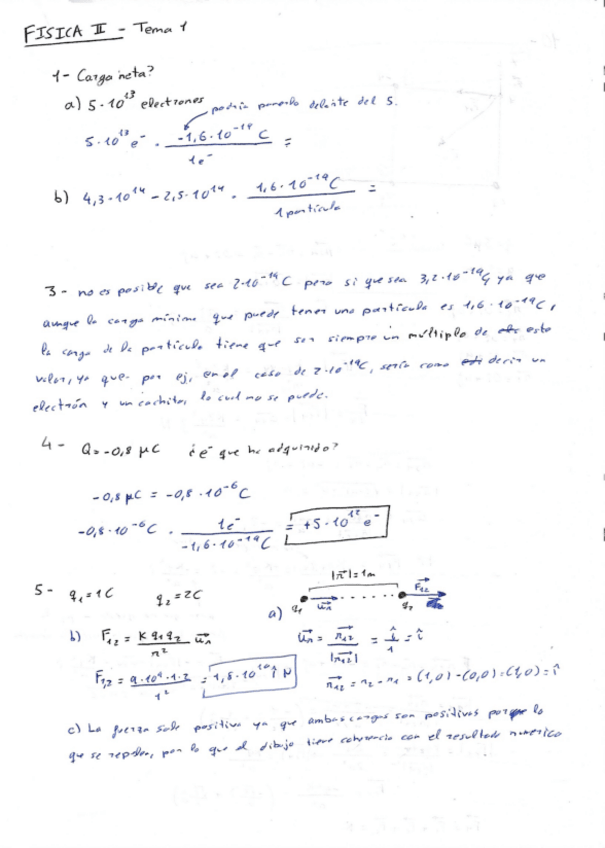 FISICA II - Tema 1
1- Carga neta?
a) 5·10^13 electrones
podría ponerlo delante del 5.
5·10^13 e⁻ · -1,6·10^-19 C / 1e⁻ =
b) 4,3·10^14 - 2,5·10^14 · 1,6·10^-19 C / 1 partícula =
3- no es posible que sea 2·10^-19 C pero si que sea 3,2·10^-19 C, ya que
aunque la carga mínima que puede tener una partícula es 1,6·10^-19 C,
la carga de la partícula tiene que ser siempre un múltiplo de este
valor, ya que por ej, en el caso de 2·10^-19 C, sería como decir un
electrón y un cachito, lo cual no se puede.
4- Q=-0,8 μC ¿e⁻ que ha adquirido?
-0,8 μC = -0,8·10^-6 C
-0,8·10^-6 C · 1e⁻ / -1,6·10^-19 C = +5·10^12 e⁻
5- q₁=1C q₂=2C
a) |r⃗|=1m
q₁ u⃗r q₂ F⃗₁₂
b) F₁₂ = K q₁ q₂ / r² u⃗r
u⃗r = r⃗₁₂ / |r⃗₁₂| = î / 1 = î
F⃗₁₂ = 9·10^9·1·2 / 1² = 1,8·10^10 î N
r⃗₁₂ = r₂ - r₁ = (1,0) - (0,0) = (1,0) = î
c) La fuerza sale positiva ya que ambas cargas son positivas por lo
que se repelen, por lo que el dibujo tiene coherencia con el resultado numérico